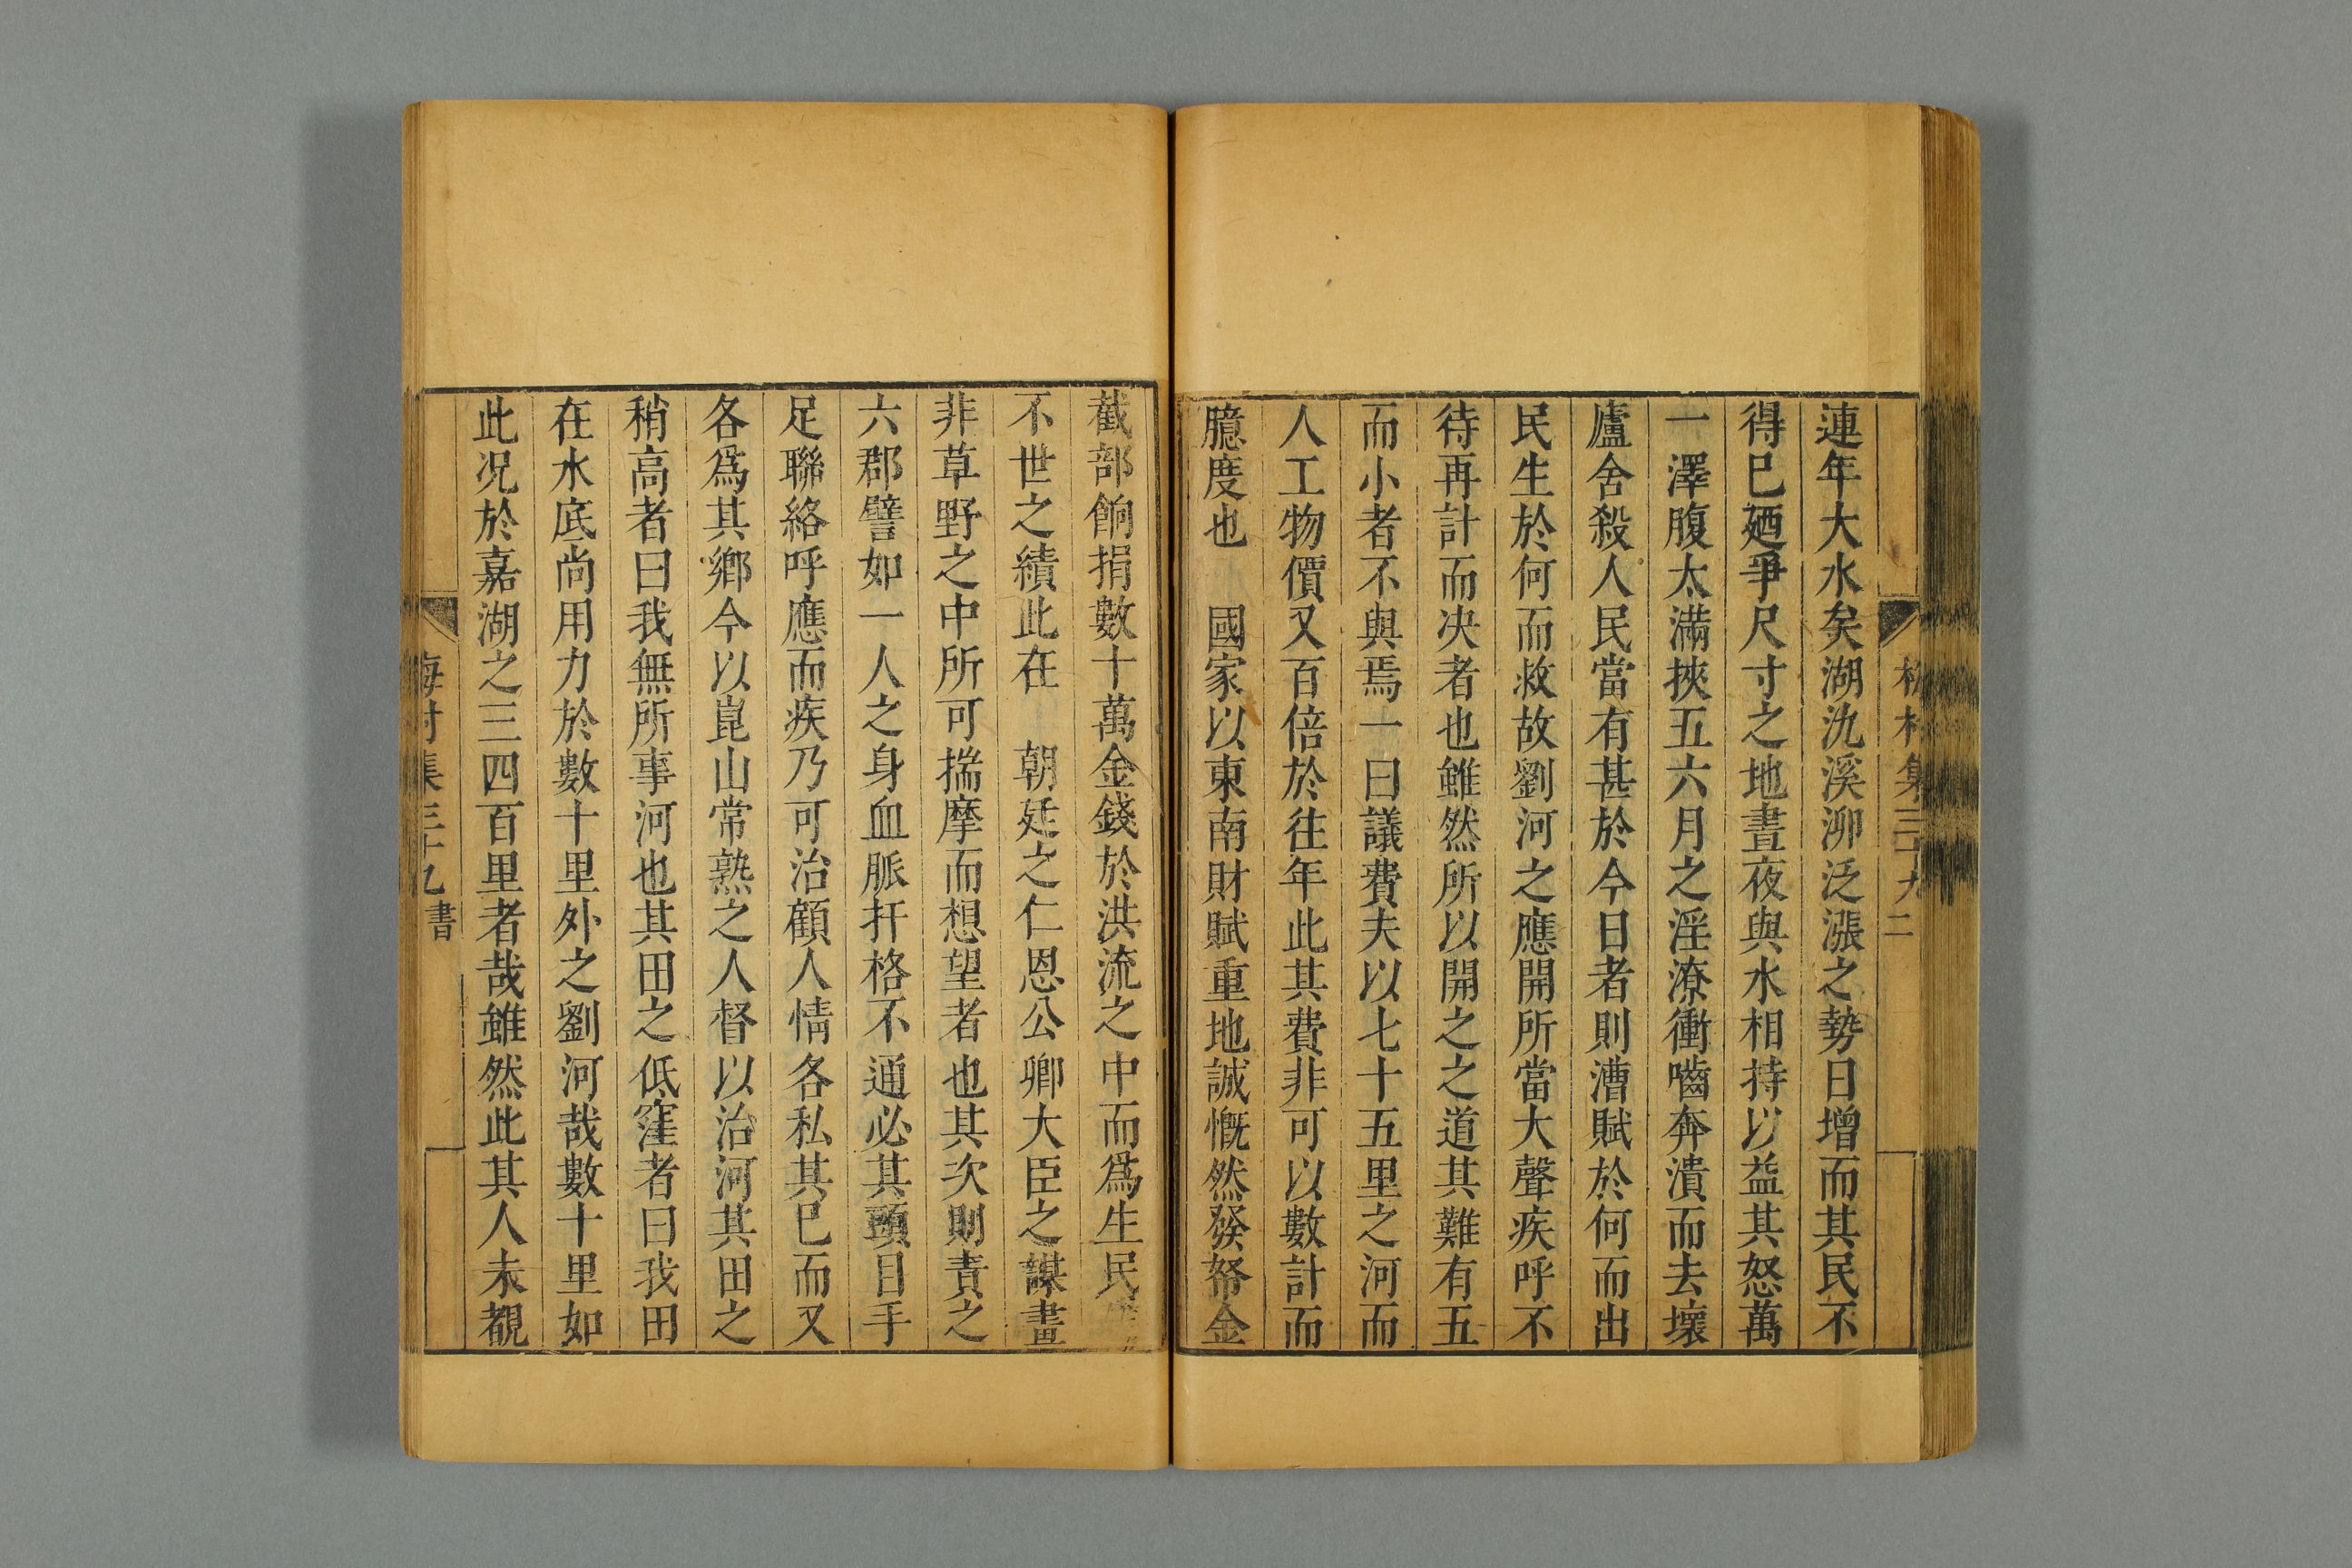 連年大水矣湖氿溪泖泛漲之勢日增而其民不
得已廼爭尺寸之地晝夜與水相持以益其怒萬
一澤腹太滿挾五六月之淫潦衝嚙奔潰而去壞
廬舍殺人民當有甚於今日者則漕賦於何而出
民生於何而救故劉河之應開所當大聲疾呼不
待再計而决者也雖然所以開之之道其難有五
而小者不與焉一曰議費夫以七十五里之河而
人工物價又百倍於往年此其費非可以數計而
臆度也 國家以東南財賦重地誠慨然發帑金
截部餉捐數十萬金錢於洪流之中而爲生民
不世之績此在 朝廷之仁恩公卿大臣之謀畫
非草野之中所可揣摩而想望者也其次則責之
六郡譬如一人之身血脈扞格不通必其頭目手
足聯絡呼應而疾乃可治顧人情各私其已而又
各爲其鄉今以崑山常熟之人督以治河其田之
稍高者曰我無所事河也其田之低窪者曰我田
在水底尚用力於數十里外之劉河哉數十里如
此况於嘉湖之三四百里者哉雖然此其人未覩
梅村集三十九 書